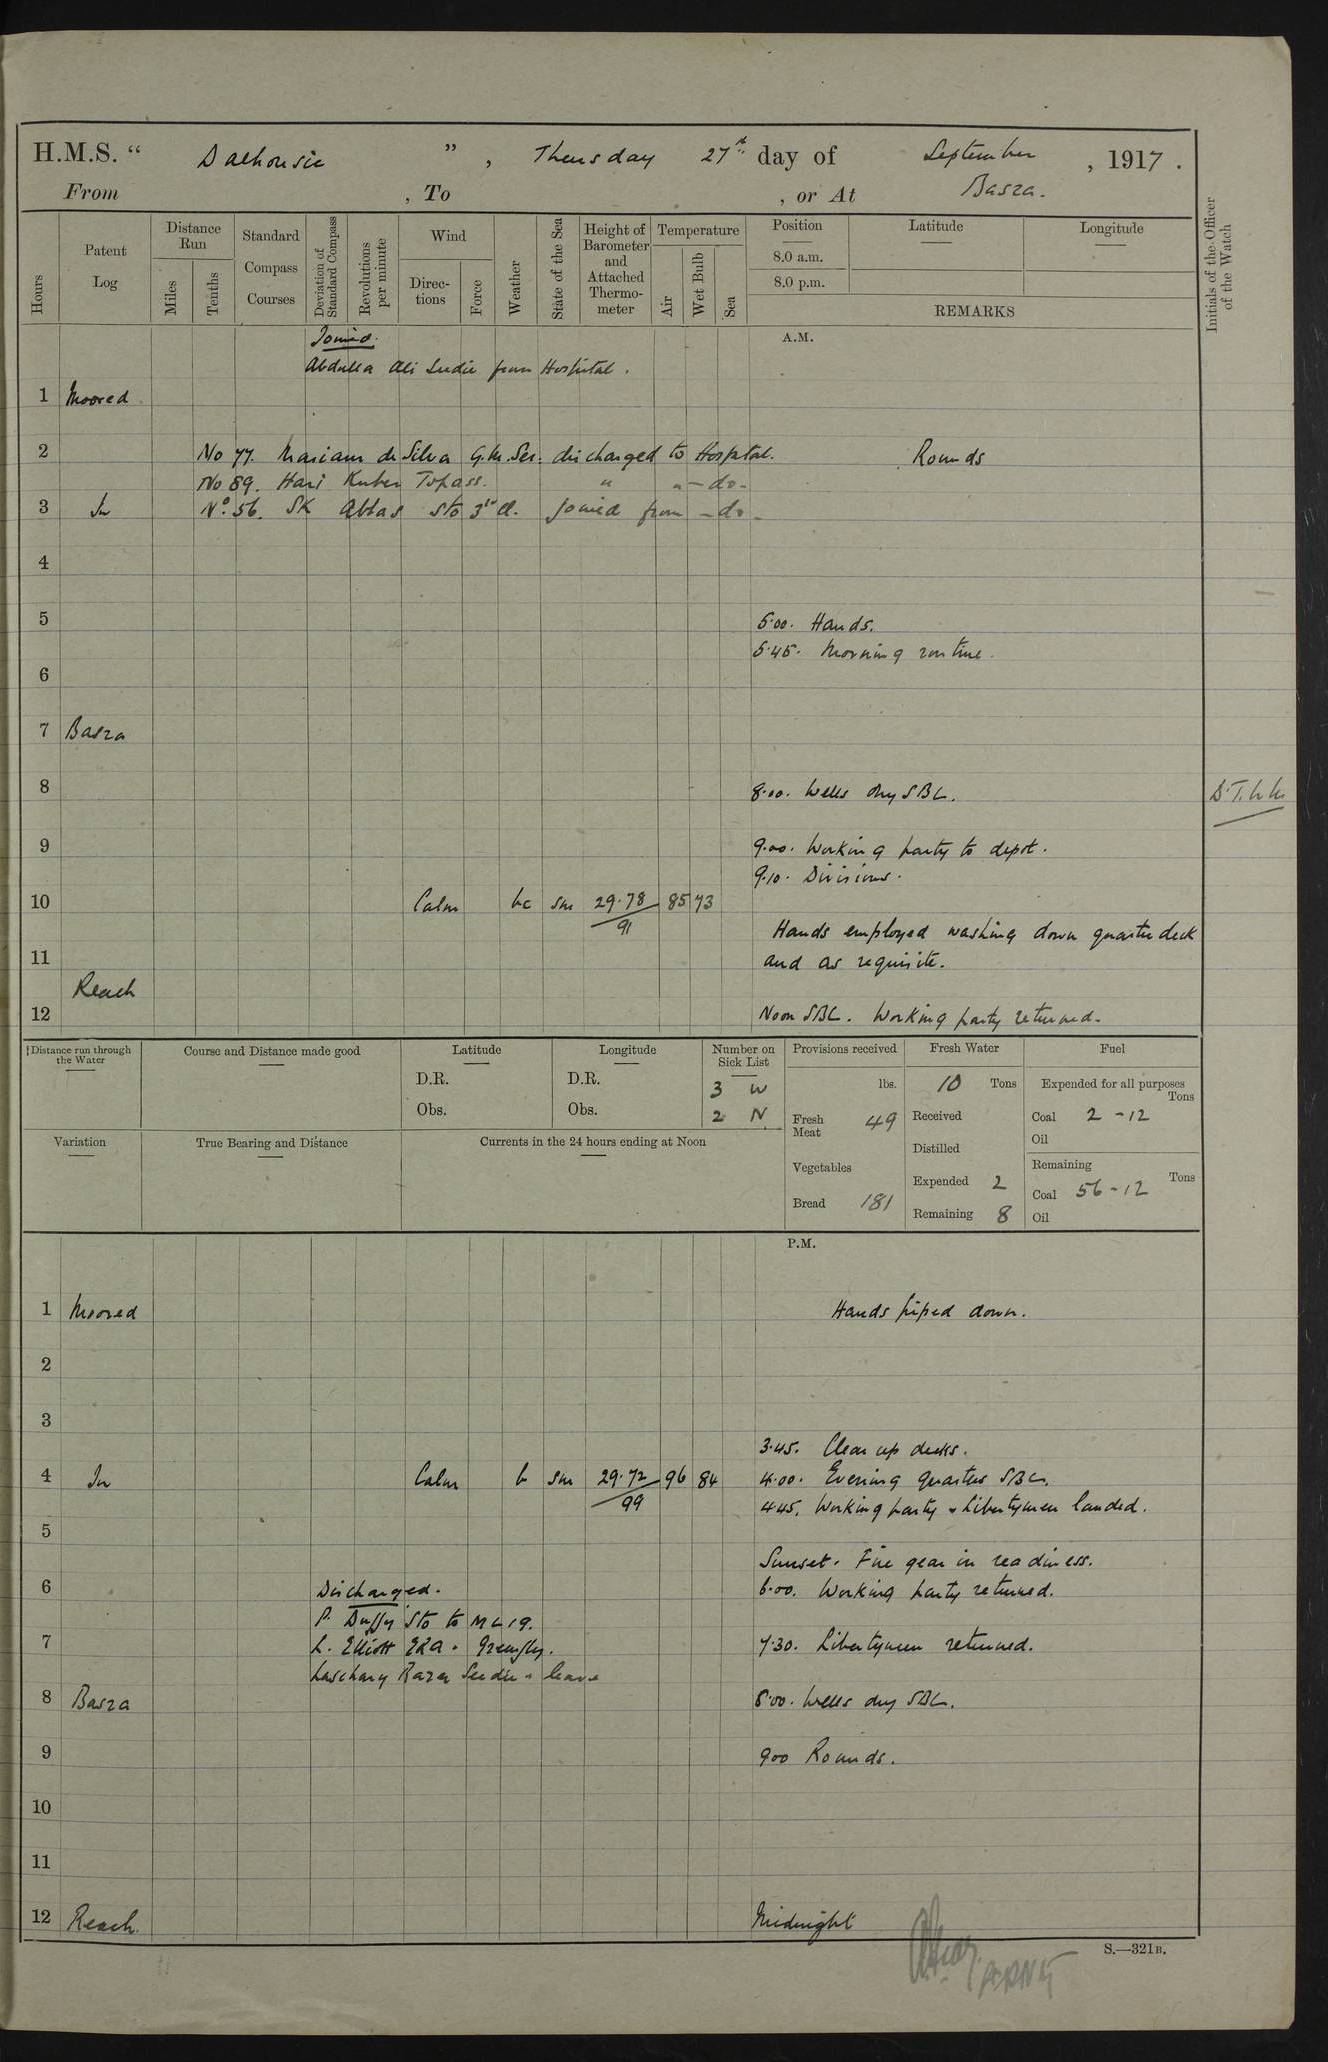 H.M.S. “ Dalhousie ”, Thursday 27th day of September, 1917.
From , To , or At Basra.
Hours
Patent Log
Distance Run
Miles
Tenths
Standard Compass Courses
Deviation of Standard Compass
Revolutions per minute
Wind
Directions
Force
Weather
State of the Sea
Height of Barometer and Attached Thermometer
Temperature
Air
Wet Bulb
Sea
Position
8.0 a.m.
8.0 p.m.
Latitude
Longitude
REMARKS
Initials of the Officer of the Watch
Joined. A.M.
Abdulla Ali Seedie from Hospital.
1 Moored
2 No 77. Mariam de Silva G.M. Ser. discharged to Hospital. Rounds
No 89. Hari Kuber Topass. " " -do-
3 In No. 56. SK Abbas Sto 3rd Cl. Joined from -do-
4
5 5.00. Hands.
5.45. Morning routine.
6
7 Basra
8 8.00. Wells dry SBL.
9 9.00. Working party to depot.
9.10. Divisions.
10 Calm bc sm 29.78 85 73
91
Hands employed washing down quarter deck
11 and as requisite.
Reach
12 Noon SBL. Working party returned.
Distance run through the Water
Course and Distance made good
Latitude
D.R.
Obs.
Longitude
D.R.
Obs.
Number on Sick List
3 W
2 N
Variation
True Bearing and Distance
Currents in the 24 hours ending at Noon
Provisions received
lbs.
Fresh Meat 49
Vegetables
Bread 181
Fresh Water
10 Tons
Received
Distilled
Expended 2
Remaining 8
Fuel
Expended for all purposes
Tons
Coal 2-12
Oil
Remaining
Tons
Coal 56-12
Oil
P.M.
1 Moored Hands piped down.
2
3
3.45. Clear up decks.
4 In Calm b sm 29.72 96 84 4.00. Evening quarters SBL.
99 4.45. Working party & Libertymen landed.
5
Sunset. Fire gear in readiness.
6 Discharged. 6.00. Working party returned.
P. Duffy Sto to ML 19.
7 L. Elliott ERA " Greenfly. 7.30. Libertymen returned.
Razer Seedie " leave
8 Basra 8.00. Wells dry SBL.
9 9.00 Rounds.
10
11
12 Reach. Midnight
S.—321B.